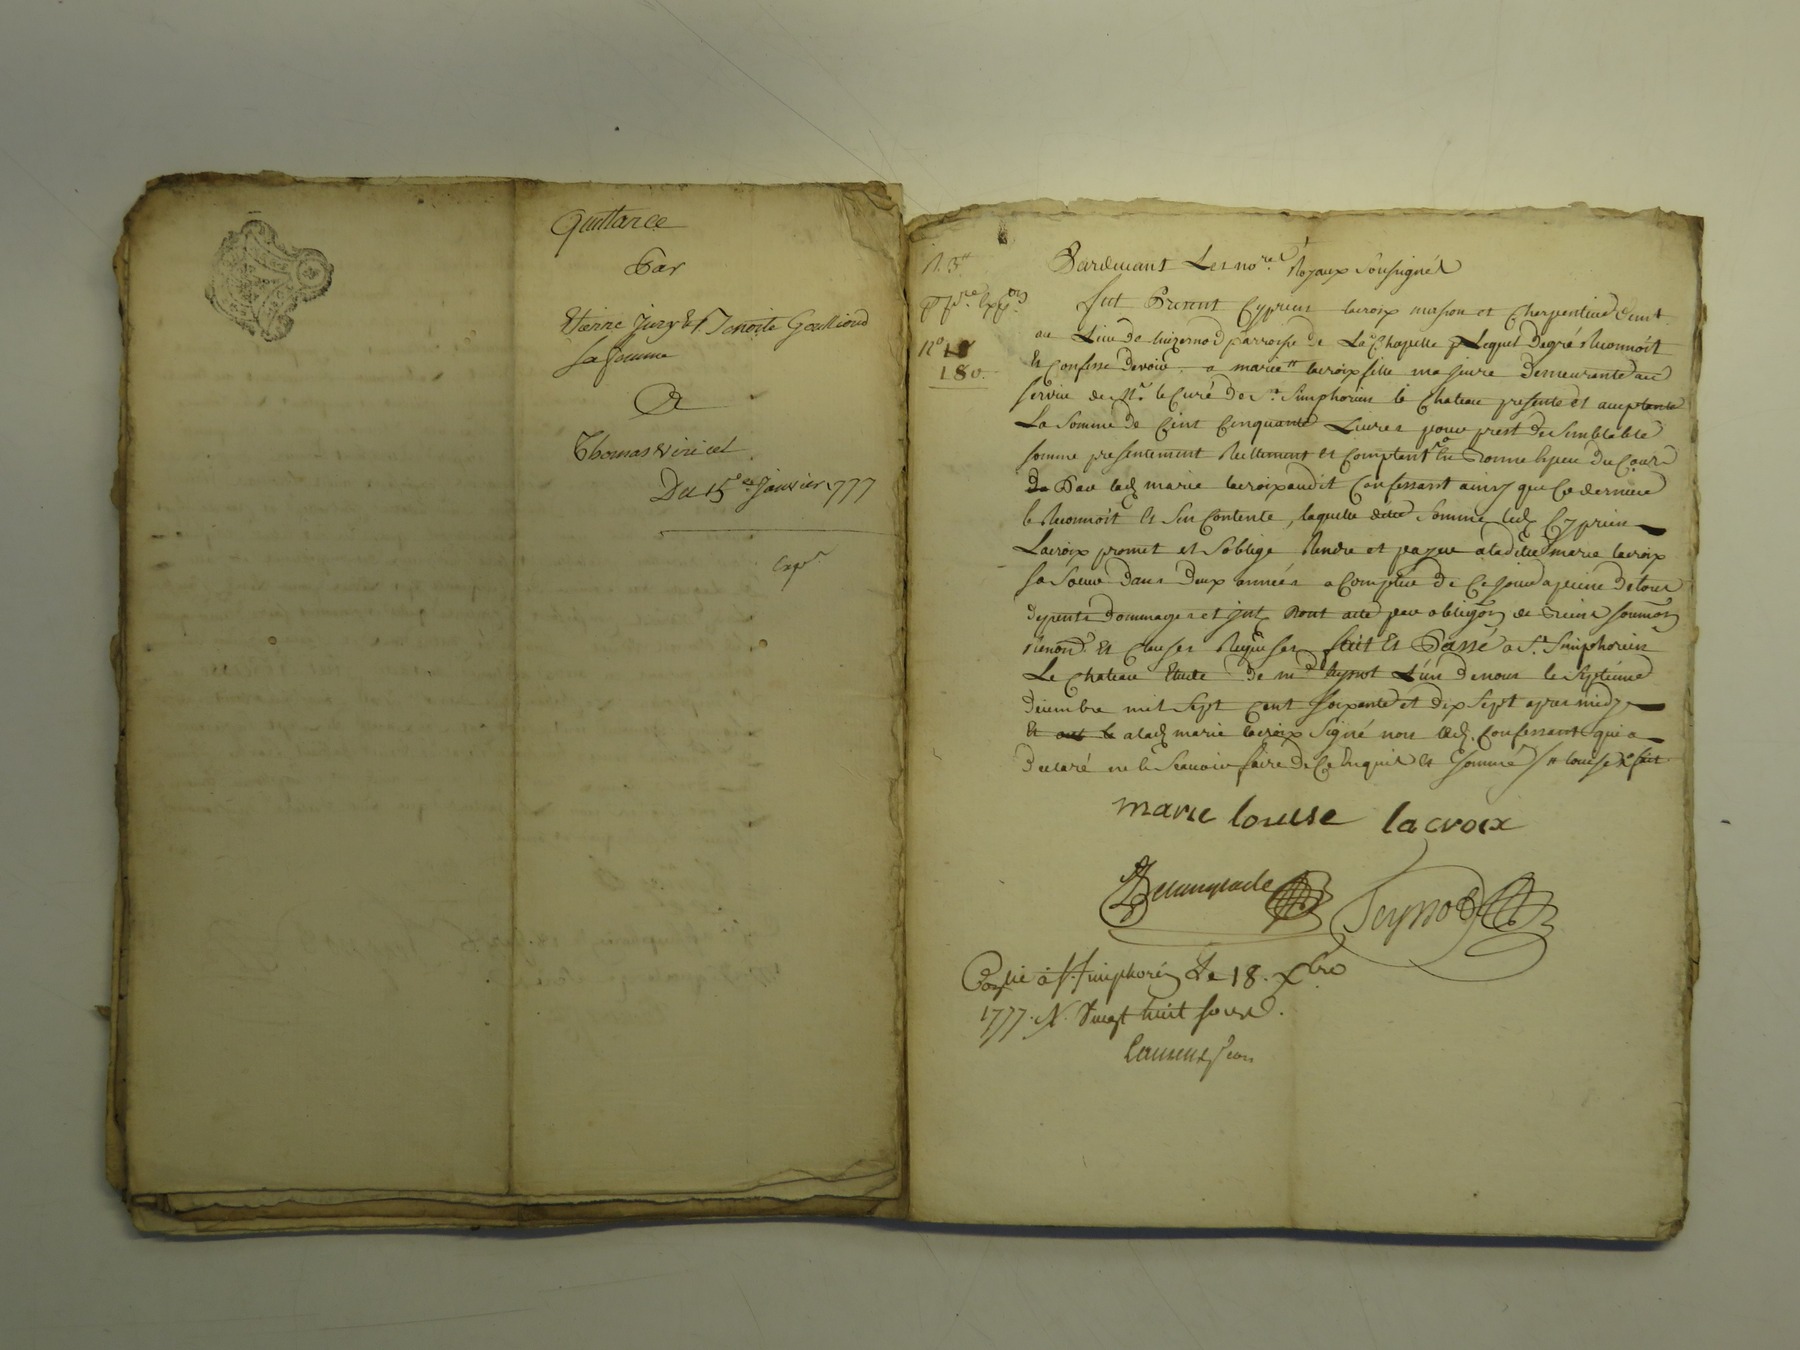 Quittance
Par
Etienne Jury Et Benoite Goulliond
Sa femme
A
Thomas Viricel
Du 15e Janvier 1777
Expé
R. 3tt
No 18
180.
Pardevant Les nores Royaux Soussignés
fut Present Cyprien lacroix masson et Charpentier demt
au Lieu de parroisse de La Chapelle Lequel De gré Reconnoit
Et Confesse devoir a marie tt lacroix fille majeure demeurante au
service de Mr le Curé de St Simphorien le Chateau presente et acceptante
La Somme de Cent Cinquante Livres pour prest de Semblable
somme presentement Reellement et Comptant en Bonne Espece du Cours
De Par lad marie lacroix audit Confessant ainsy que Ce dernier
le Reconnoit Et S'en Contente, laquelle ditte Somme led Cyprien
Lacroix promet et S'oblige Rendre et payer a laditte marie lacroix
Sa Soeur Dans Deux années a Compter de Ce jour a peine de tous
depents dommages et int Dont acte par obligon de Biens Soumon
Renonon Et Clauses Requises fait Et Passé a St Simphorien
Le Chateau Etude de me Peyssot L'un de nous le Septieme
decembre mil Sept Cent Soixante et dix Sept apres midy
Et lad marie lacroix Signé non led. Confessant qui a
Declaré ne le Scavoir faire de Ce Enquis Et Sommé /tt louise
marie louise lacroix
Peyssot
Conlé a St Simphorien Le 18. Xbre
1777. R. Vingt huit sous.